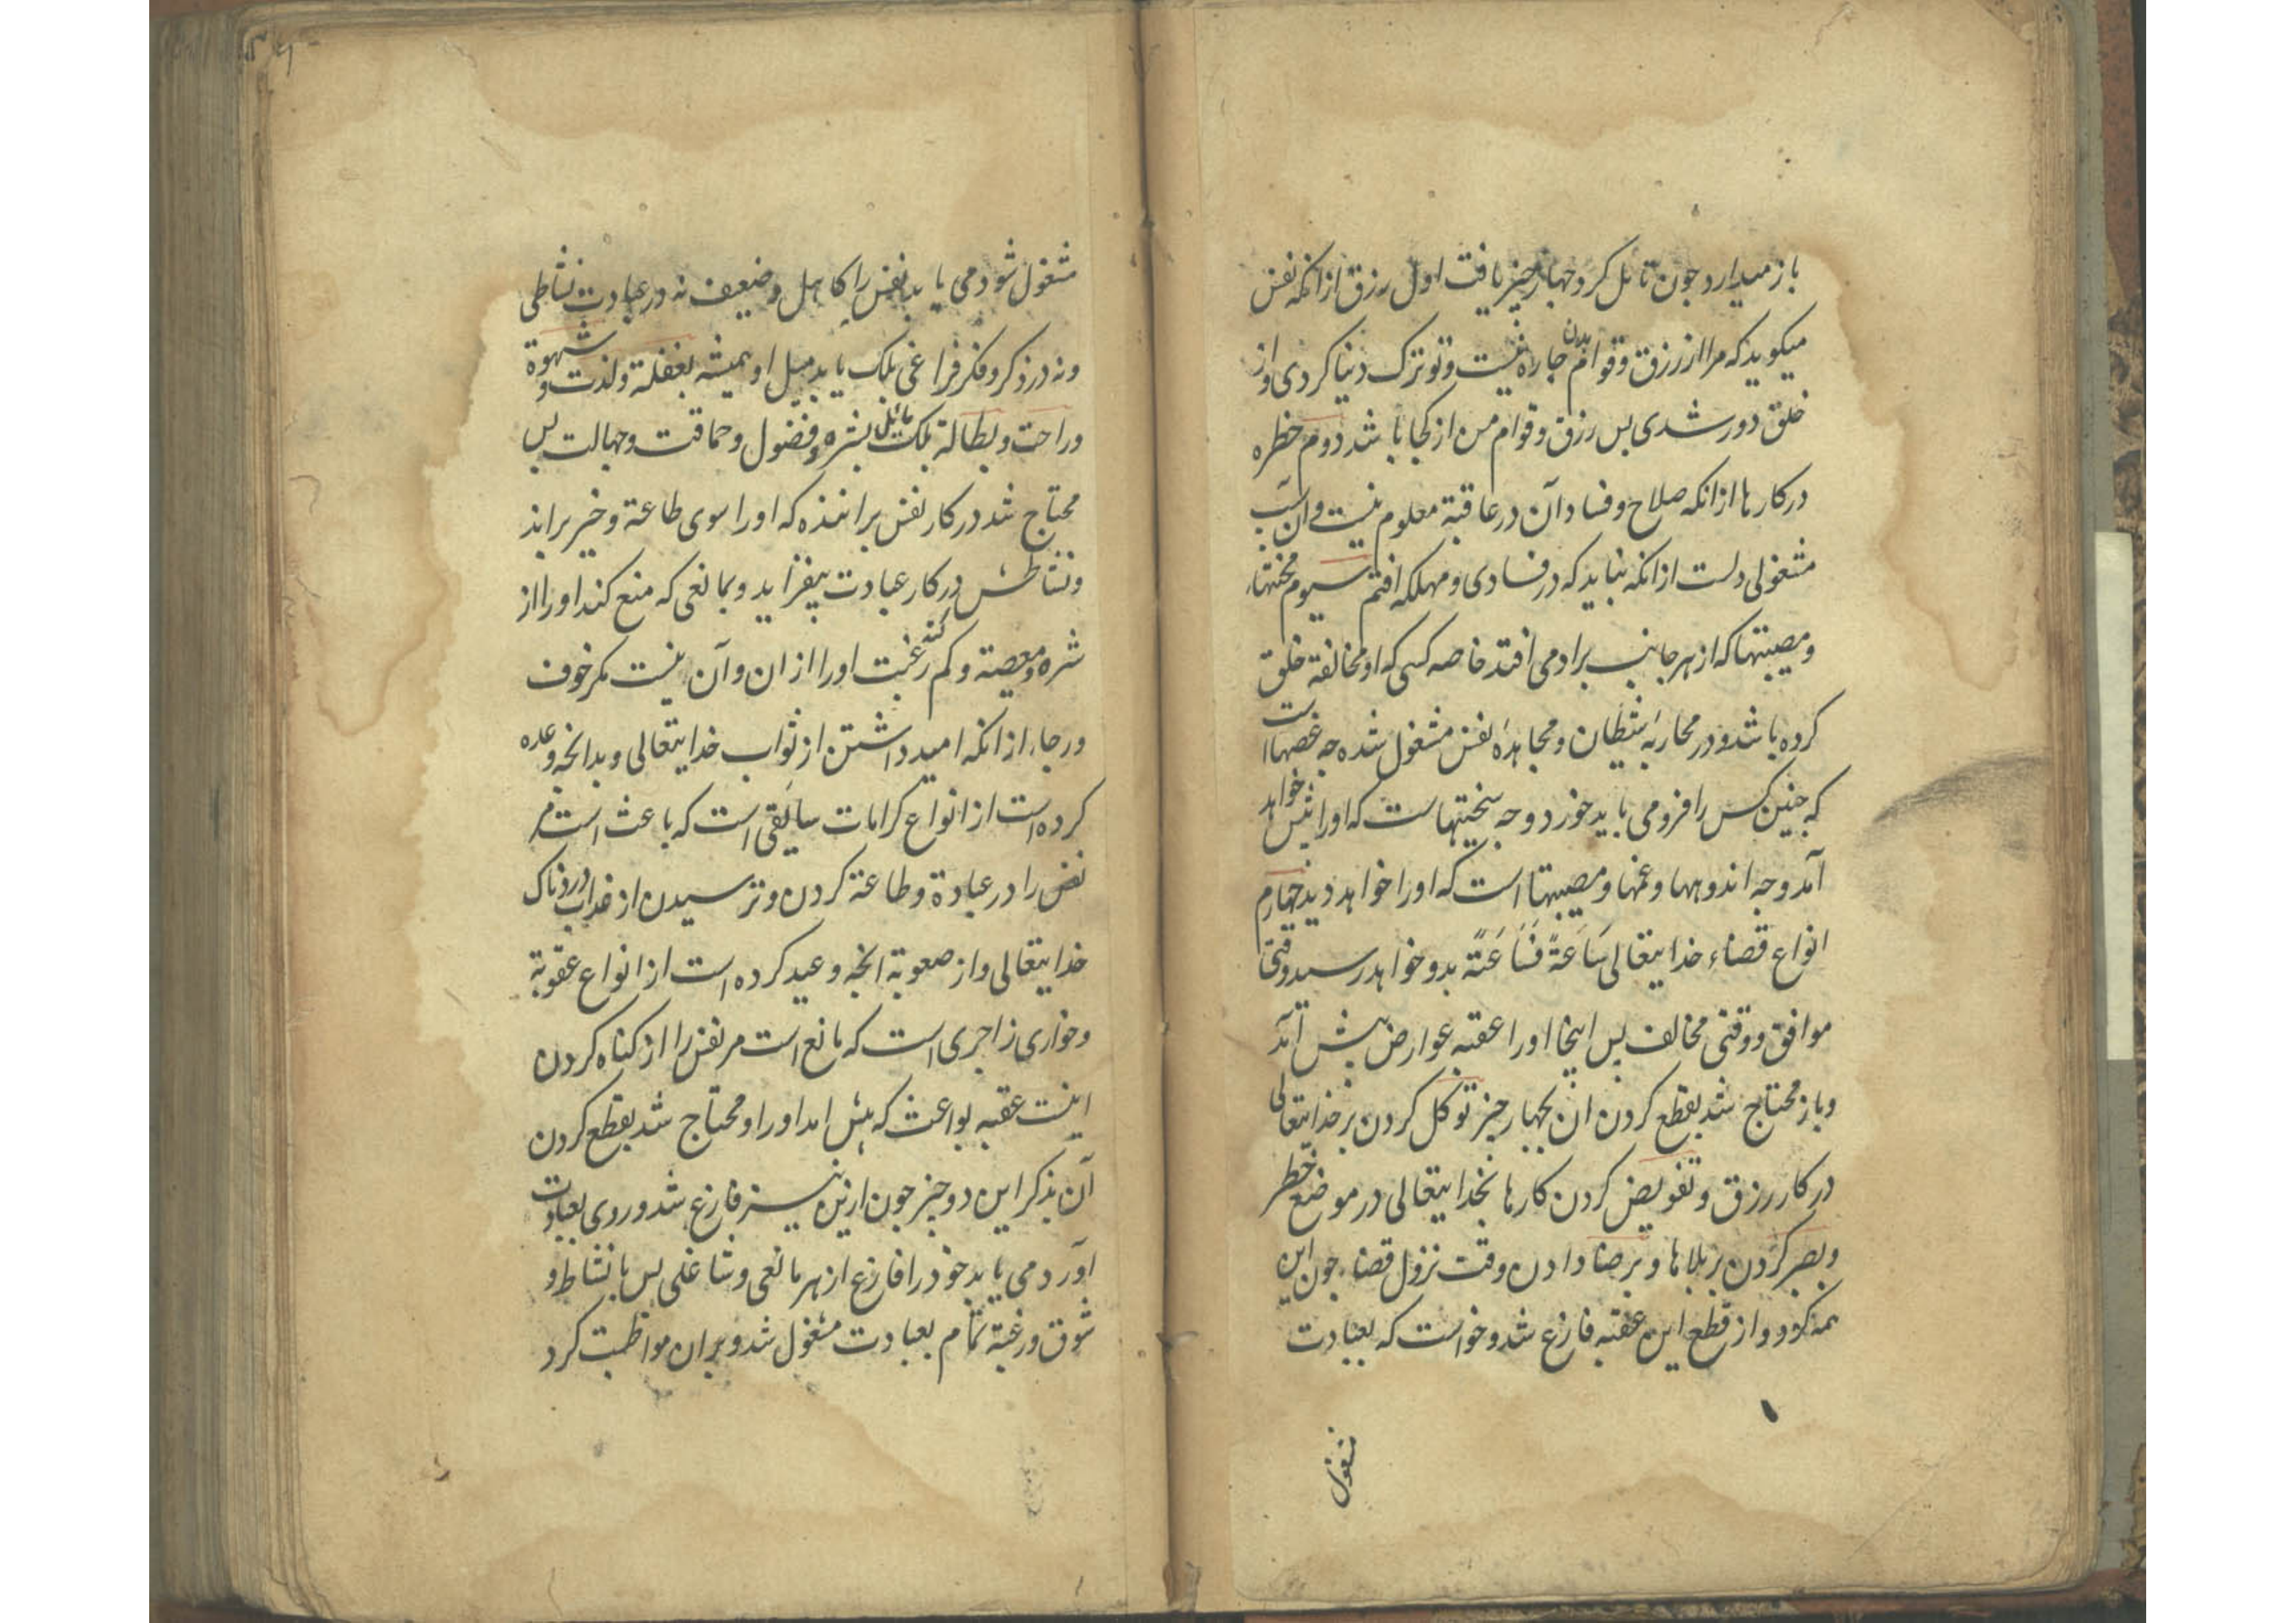 باز میدارد جون تامل کرد جهار جیز یافت اول رزق از انکه نفس
میکوید که مرا از رزق و قوام بدن جاره نیست و تو ترک دنیا کردی و از
خلق دور شدی بس رزق و قوام من از کجا باشد دوم خطره
در کارها از انکه صلاح و فساد آن در عاقبة معلوم نیست و ان سبب
مشغولی دلست از انکه نباید که در فسادی و مهلکه افتم سیوم محنتها
و مصیبتها که از هر جانب برو می افتد خاصه کسی که او مخالفة خلق
کرده باشد و در محاربهٔ شیطان و مجاهدهٔ نفس مشغول شده جه غصها است
که جنین کس را فرو می باید خورد و جه سختیهاست که او را بیش خواهد
آمد و جه اندوهها و غمها و مصیبتها است که او را خواهد دید جهارم
انواع قضاء خدایتعالی سَاعَةً فَسَاعَةً بدو خواهد رسید وقتی
موافق و وقتی مخالف بس اینجا او را عقبه عوارض بیش آمد
و باز محتاج شد بقطع کردن ان بجهار جیز توکل کردن بر خدایتعالی
در کار رزق و تفویض کردن کارها بخدایتعالی در موضع خطر
و بصبر کردن بر بلاها و برضا دادن وقت نزول قضاء جون این
همه کرد و از قطع این عقبه فارغ شد و خواست که بعبادت
مشغول
مشغول شود می یابد نفس را کاهل و ضعیف نه در عبادت نشاطی
و نه در ذکر و فکر فراغی بلک یابد میل او همیشه بغفلة و لذت و شهوة
و راحت و بطالة بلک مایل بشره و فضول و حماقت و جهالت بس
محتاج شد در کار نفس براننده که او را سوی طاعة و خیر براند
و نشاطش در کار عبادت بیفزاید و بمانعی که منع کند او را از
شره و معصیة و کم کند رغبت او را از ان و آن نیست مکر خوف
و رجاء از انکه امید داشتن از ثواب خدایتعالی و بدانجه وعده
کرده است از انواع کرامات سایقی است که باعث است مر
نفس را در عبادة و طاعة کردن و ترسیدن از عذاب دردناک
خدایتعالی و از صعوبة انجه وعید کرده است از انواع عقوبة
و خواری زاجری است که مانع است مر نفس را از کناه کردن
اینست عقبه بواعث که بیش امد او را و محتاج شد بقطع کردن
آن بذکر این دو جیز جون ازین نیز فارغ شد و روی بعبادت
آورد می یابد خود را فارغ از هر مانعی و شاغلی بس با نشاط و
شوق و رغبة تمام بعبادت مشغول شد و بر ان مواظبت کرد